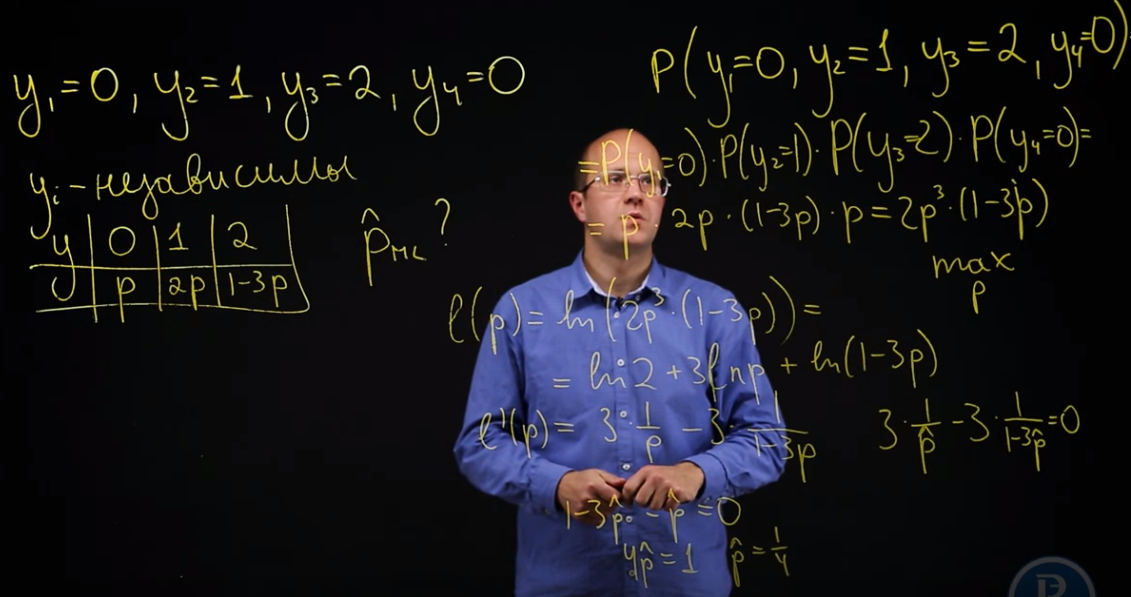 y₁=0, y₂=1, y₃=2, y₄=0
yᵢ-независимы
y | 0 | 1 | 2
p | 2p | 1-3p
p̂мс?
P(y₁=0, y₂=1, y₃=2, y₄=0)=
=P(y₁=0)·P(y₂=1)·P(y₃=2)·P(y₄=0)=
= p · 2p · (1-3p) · p = 2p³·(1-3p)
max
p
ℓ(p) = ln(2p³·(1-3p)) =
= ln 2 + 3 ln p + ln(1-3p)
ℓ'(p) = 3·1/p - 3·1/(1-3p)
3·1/p̂ - 3·1/(1-3p̂) = 0
1-3p̂ - p̂ = 0
4p̂ = 1 p̂ = 1/4